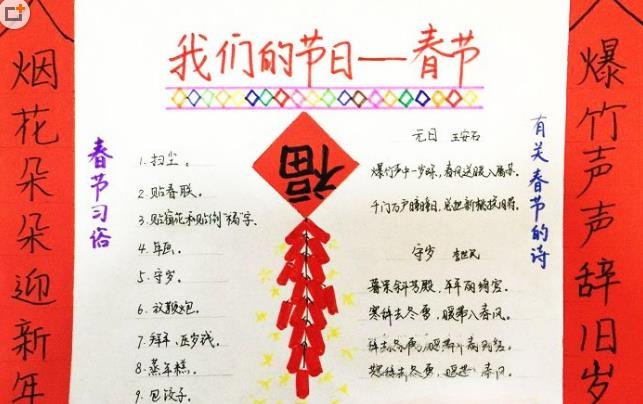 我们的节日——春节
烟花朵朵迎新年
春节习俗
1.扫尘。
2.贴春联。
3.贴窗花和贴倒"福"字。
4.年画。
5.守岁。
6.放鞭炮。
7.拜年、压岁钱。
8.蒸年糕。
9.包饺子。
福
元日 王安石
爆竹声中一岁除,春风送暖入屠苏。
千门万户曈曈日,总把新桃换旧符。
守岁 李世民
暮景斜芳殿,年年丽绮宫。
寒辞去冬雪,暖带入春风。
辞去冬
辞去冬雪,春风。
有关春节的诗
爆竹声声辞旧岁